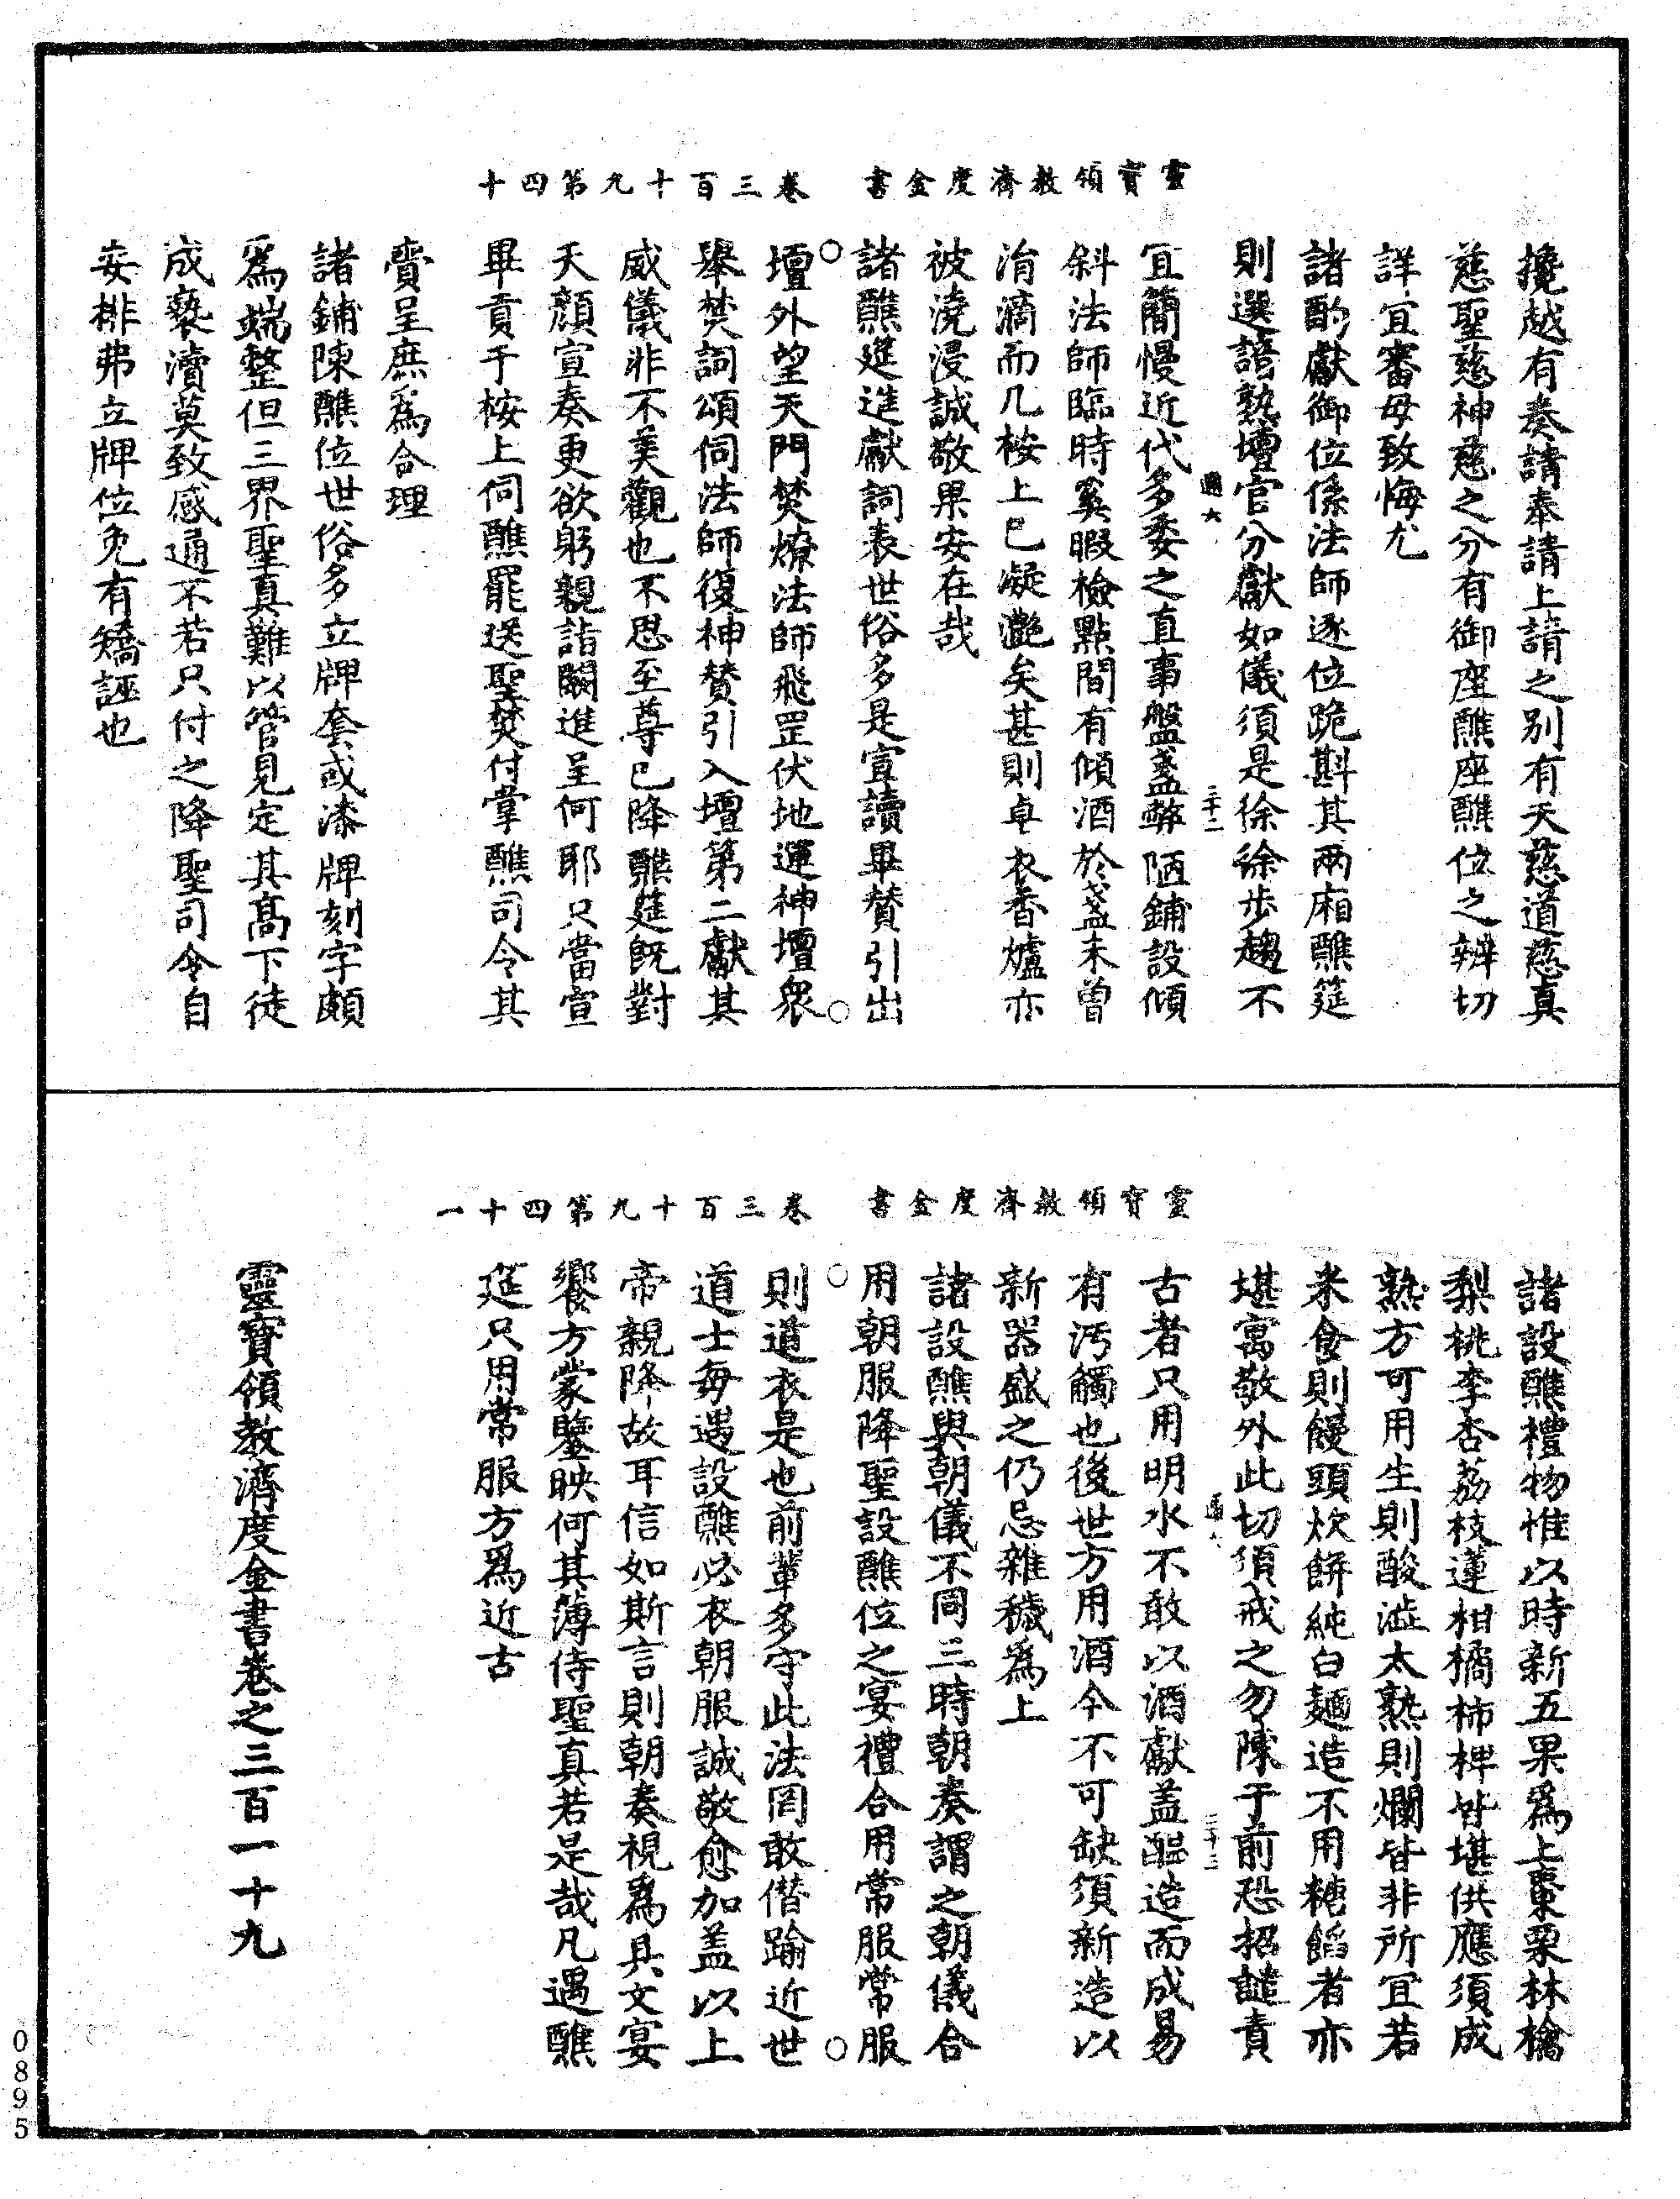 靈寶領教濟度金書　卷三百十九第四十
攙越有奏請奉請上請之別有天慈道慈真
慈聖慈神慈之分有御座醮座醮位之辨切
詳宜審毋致悔尤
諸酌獻御位係法師逐位跪斟其兩廂醮筵
則選諳熟壇官分獻如儀須是徐徐步趨不
三十二
宜簡慢近代多委之直事盤盞弊陋鋪設傾
斜法師臨時奚暇檢點間有傾酒於盞未曾
涓滴而几桉上已凝灔矣甚則卓衣香爐亦
被澆浸誠敬果安在哉
諸醮筵進獻詞表世俗多是宣讀畢贊引出
壇外望天門焚燎法師飛罡伏地運神壇眾
舉焚詞頌伺法師復神贊引入壇第二獻其
威儀非不美觀也不思至尊已降醮筵既對
天顏宣奏更欲躬親詣闕進呈何耶只當宣
畢貢于桉上伺醮罷送聖焚付掌醮司令其
賫呈庶為合理
諸鋪陳醮位世俗多立牌套或漆牌刻字頗
為端整但三界聖真難以管見定其高下徒
成褻瀆莫致感通不若只付之降聖司令自
安排弗立牌位免有矯誣也
靈寶領教濟度金書　卷三百十九第四十一
諸設醮禮物惟以時新五果為上棗栗林檎
梨桃李杏荔枝蓮柑橘柿椑皆堪供應須成
熟方可用生則酸澁太熟則爛皆非所宜若
米食則饅頭炊餅純白麵造不用糖餡者亦
堪寓敬外此切須戒之勿陳于前恐招譴責
三十三
古者只用明水不敢以酒獻盖醞造而成易
有汚觸也後世方用酒今不可缺須新造以
新器盛之仍忌雜穢為上
諸設醮與朝儀不同三時朝奏謂之朝儀合
用朝服降聖設醮位之宴禮合用常服常服
則道衣是也前輩多守此法罔敢僭踰近世
道士每遇設醮必衣朝服誠敬愈加盖以上
帝親降故耳信如斯言則朝奏視為具文宴
饗方蒙鑒映何其薄待聖真若是哉凡遇醮
筵只用常服方為近古
靈寶領教濟度金書卷之三百一十九
0895